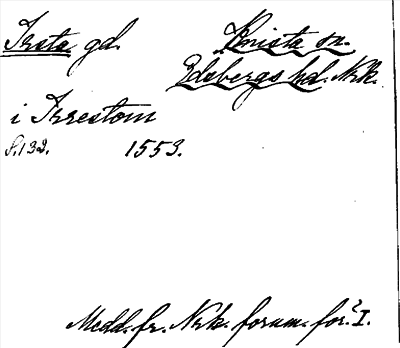 Irsta gd. Knista sn.
Edsbergs hd. Nrk.
i Irrestom
S. 132. 1553.
Medd. fr. Nrk. fornm. för. I.